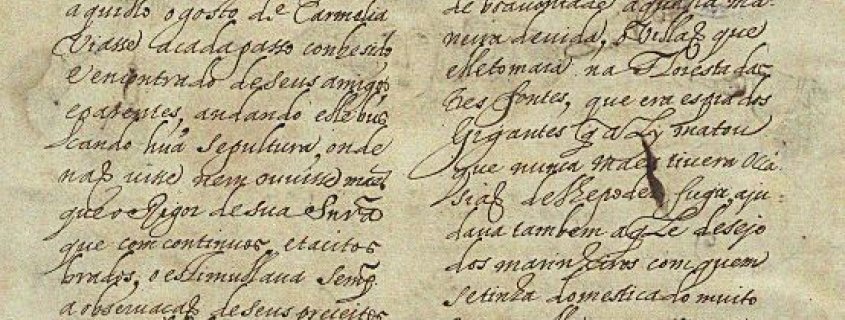 aquillo o gosto de Carmelia
Viasse acada passo conhesido
e encontrado de seus amigos
e parentes, andando elle bus
cando huã sepultura, onde
naõ visse nem ouvisse mais
que o Rigor de sua
que com continuos, etacitos
brados, o estimullava
a observaçaõ de seus preceitos
de bravosidade aquella ma-
neira de vida, o Vilhaõ que
elle tomara na Floresta das
tres fontes, que era espia dos
Gigantes q̃ aLi matou
que nunca mais tivera occa-
siaõ de fuga, aju-
dava tambem a desejo
dos marinheiros com quem
setinha domesticado muito